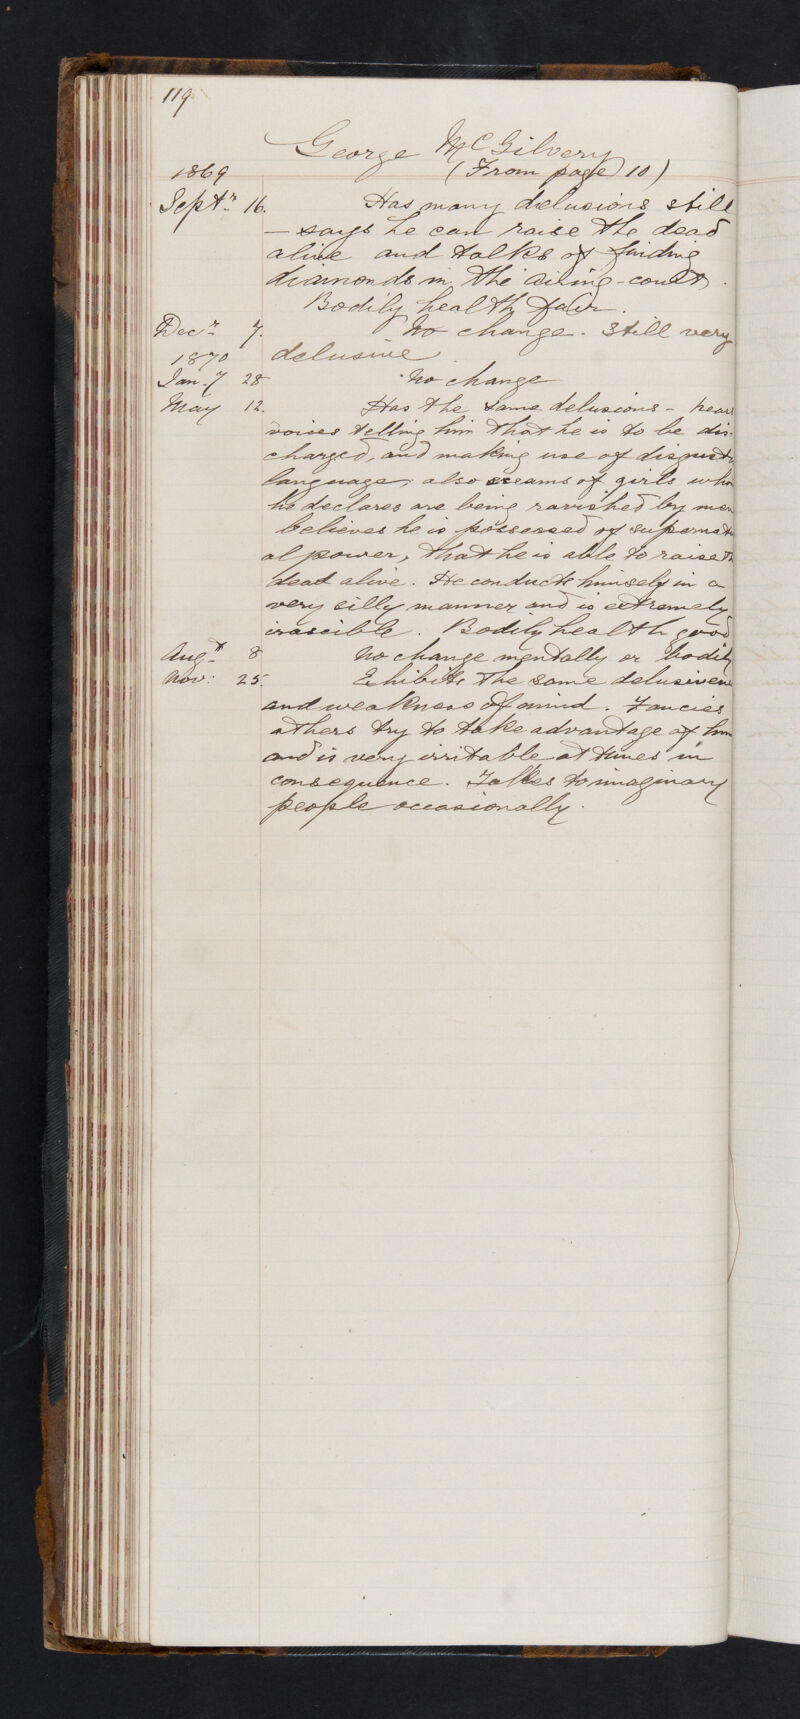 119
George McGilvery
1869 (From page 10)
Septr. 16. Has many delusions still
- says he can raise the dead
alive and talks of finding
diamonds in the airing-court.
Bodily health fair.
Decr. 7. No change. Still very
1870 delusive
Jan.y 28 No change
May 12. Has the same delusions - hears
voices telling him that he is to be dis-
charged, and making use of disgust
language; also screams of girls whom
he declares are being ravished by men
believes he is possessed of supernat
al power, that he is able to raise th
dead alive. He conducts himself in a
very silly manner and is extremely
irascible. Bodily health good
Augt. 8 No change mentally or bodily
Nov: 25. Exhibits the same delusivene
and weakness of mind. Fancies
others try to take advantage of him
and is very irritable at times in
consequence. Talks to imaginary
people occasionally.